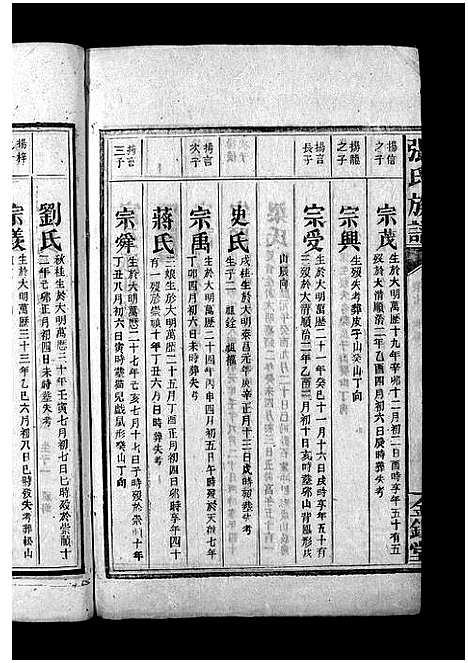 張氏族譜
金鑑堂
揚信之子
宗茂
生於大明萬歷十九年辛卯十二月初二日酉時享年五十有五
歿於大清順治二年乙酉三月初六日戌時葬失考
揚龍之子
宗興
生歿失考葬皮子山癸山丁向
揚言長子
宗受
生於大明萬歷二十一年癸巳十一月十六日戌時享年五十有
三歿於大清順治二年乙酉十月初十日亥時葬山背鳳形戌
山辰向
史氏
戌桂生於大明泰昌元年庚辛正月十三日戌時歿葬失考
生子二 祖銓 祖福
揚言次子
宗禹
生於大明萬歷二十四年丙申四月初五日午時歿於天啟七年
丁卯四月初六日未時葬失考
蔣氏
二娘生於大明萬歷二十五月丁酉正月初四日卯時享年四十
有一歿於崇禎十年丁丑六月 日時葬失考
揚言三子
宗舜
生於大明萬歷二十七年己亥七月十七日子時歿於崇禎十年
丁丑八月初六日寅時葬猫兒戲鼠形癸山丁向
劉氏
秋桂生於大明萬歷三十年壬寅七月初七日巳時歿於崇禎十
二年己卯正月初四日未時葬失考
揚梓
宗義
生於大明萬歷三十三年乙巳六月初八日巳時歿失考葬松山